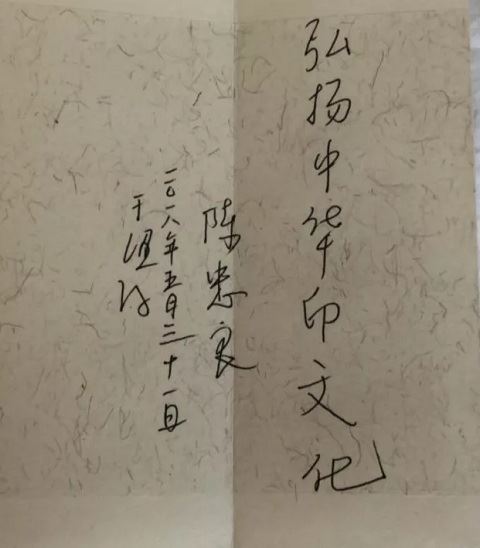 弘扬中华印文化
陈忠良
二〇一八年五月三十一日
于